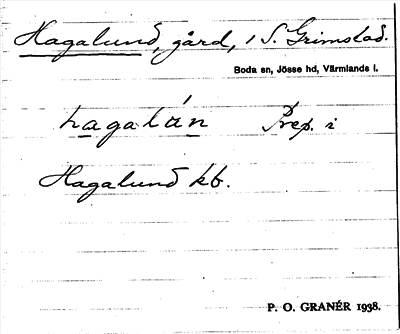 Hagalund, gård, i S. Grimstad.
Boda sn, Jösse hd, Värmlands l.
hagalán Prep. i
Hagalund kb.
P. O. GRANÉR 1938.